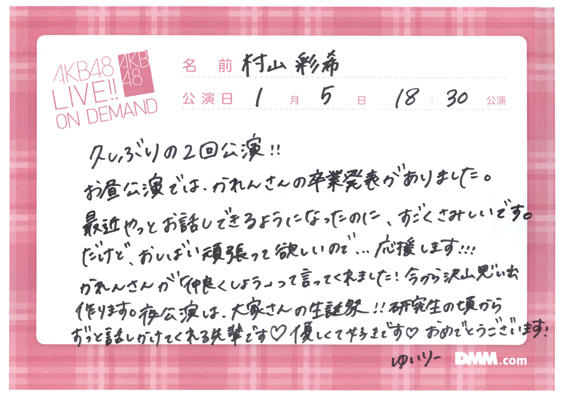 AKB48
LIVE!!
ON DEMAND
AKB
48
名前 村山彩希
公演日 1月5日 18:30公演
久しぶりの2回公演!!
お昼公演では、かれんさんの卒業発表がありました。
最近やっとお話しできるようになったのに、すごくさみしいです。
だけど、おしばい頑張って欲しいので…応援します!!!
かれんさんが「仲良くしよう」って言ってくれました!今から沢山思い出
作ります。夜公演は、大家さんの生誕祭!!研究生の頃から
ずっと話しかけてくれる先輩です♡優しくて大好きです♡おめでとうございます!
ゆいりー
DMM.com